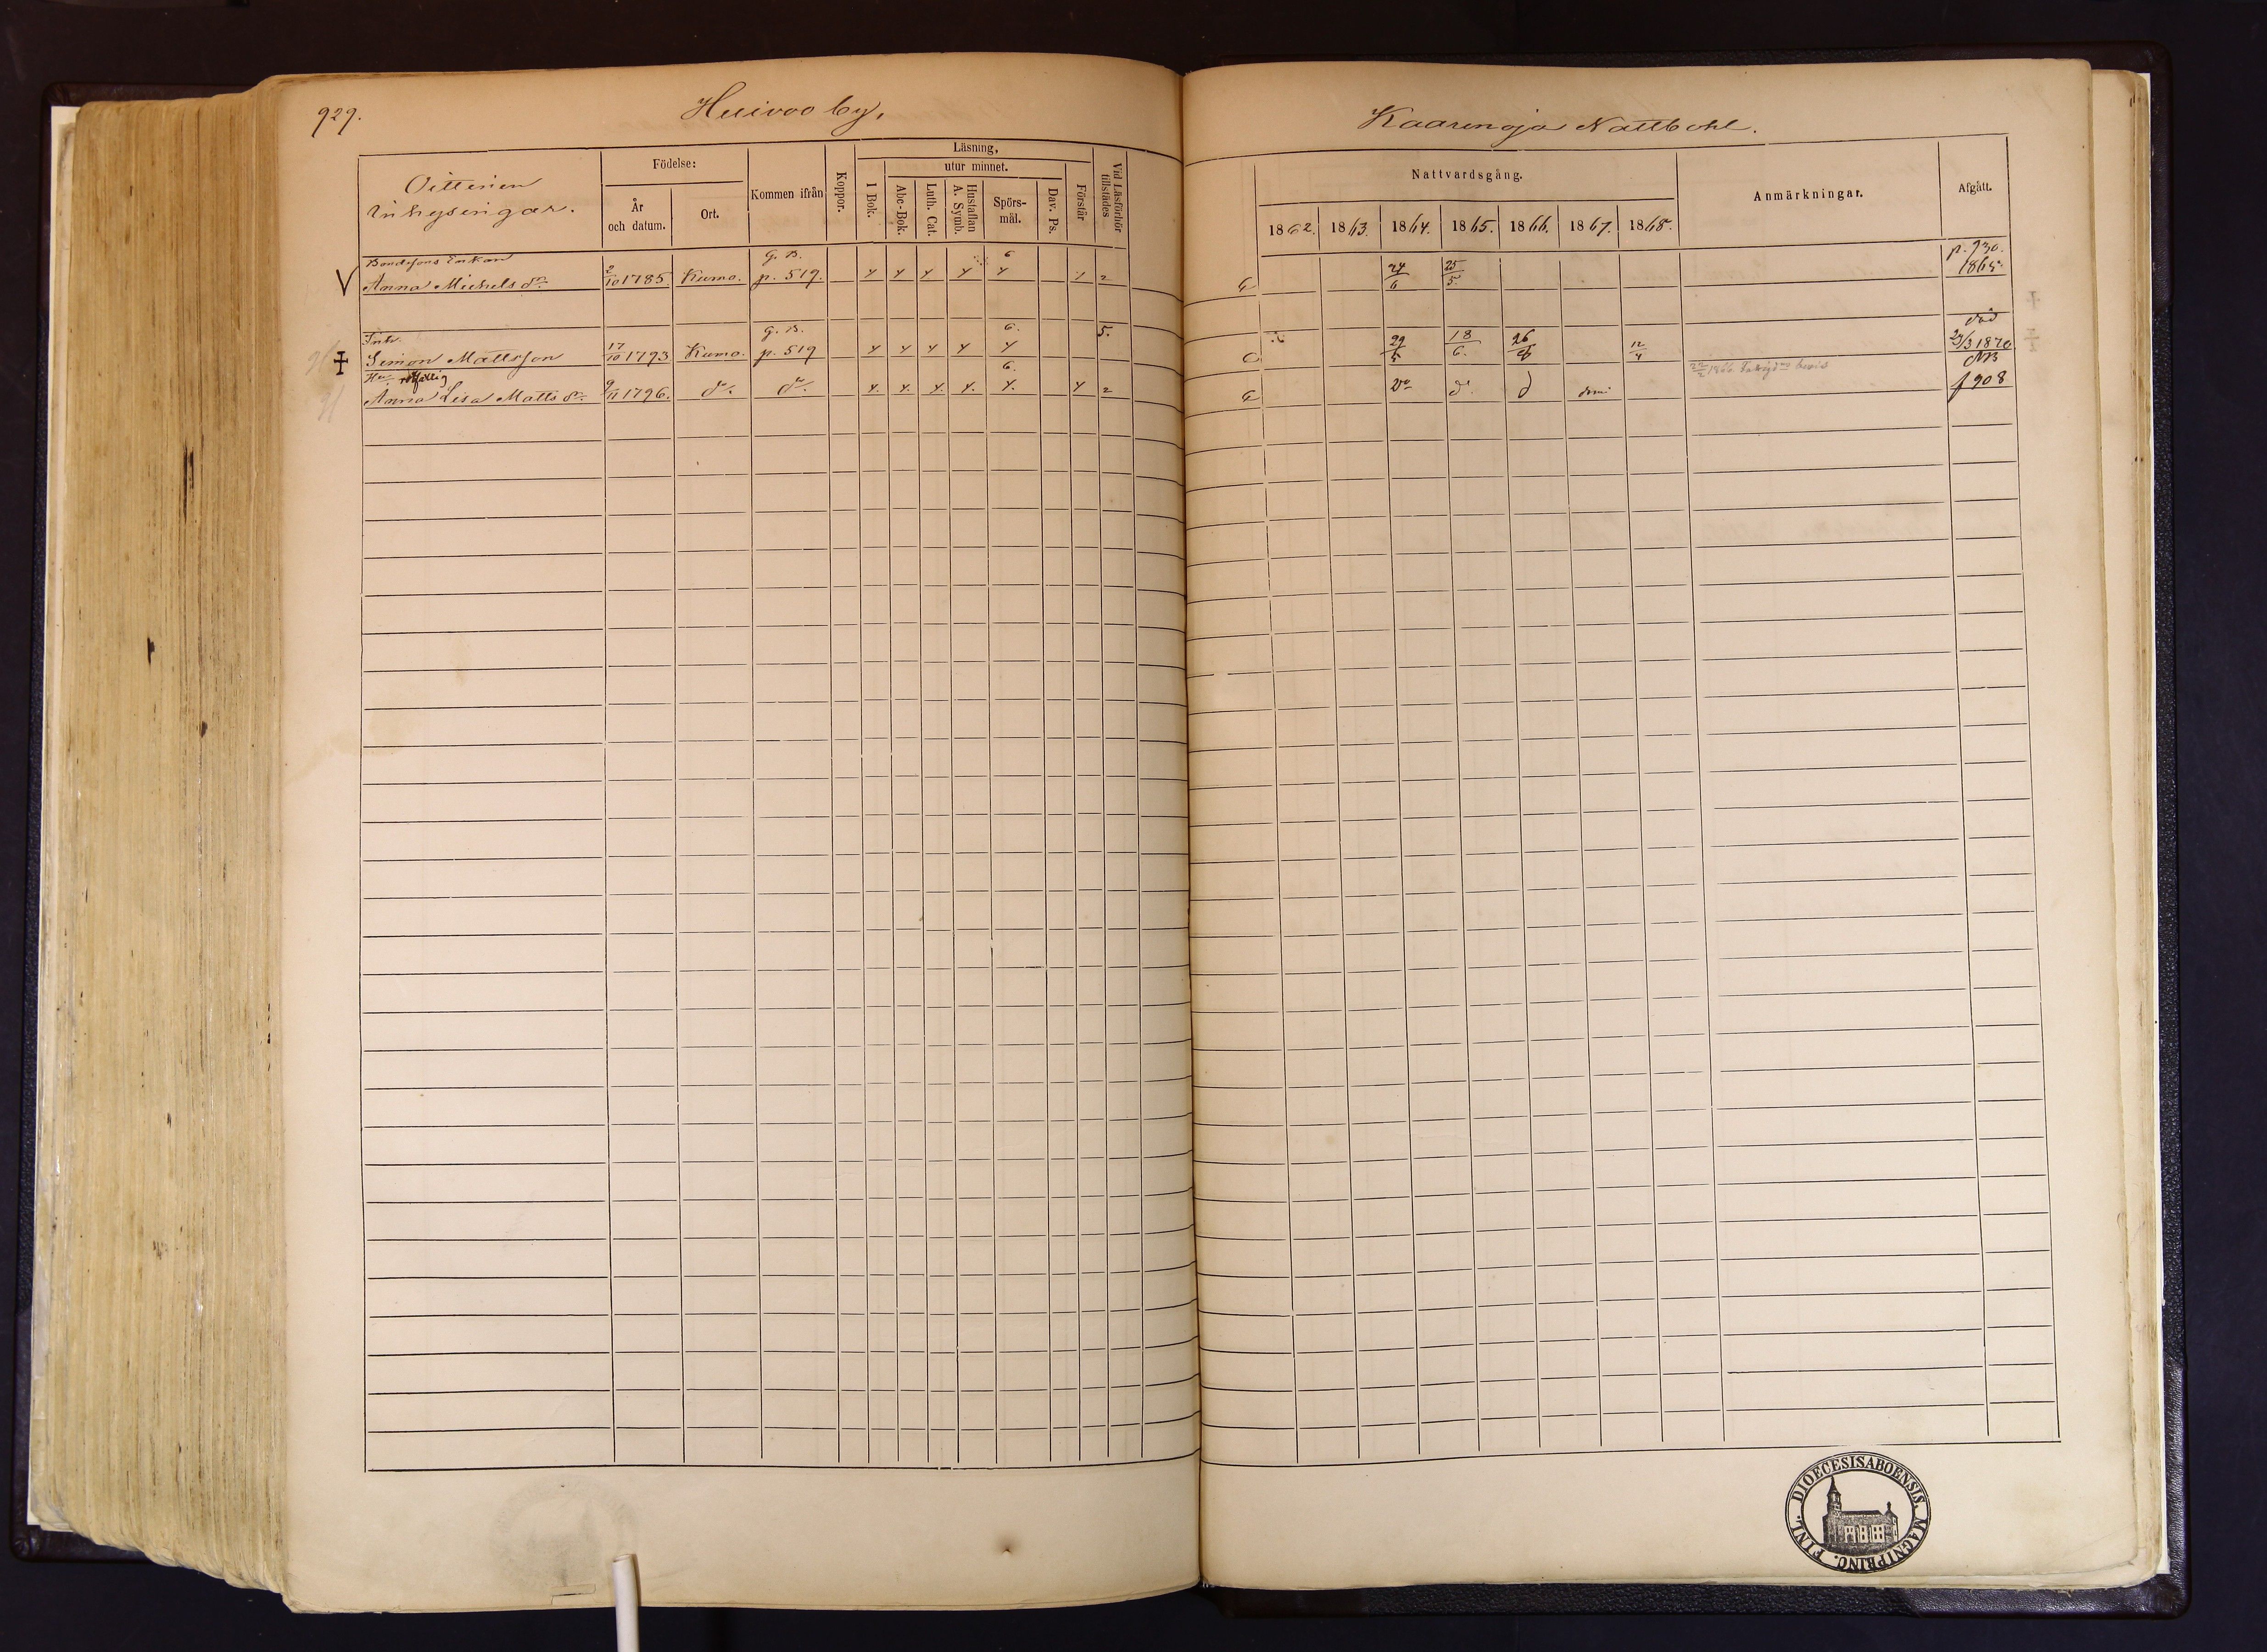 929.
Huivoo by,
Kaarenoja Nattbohl.
Oitterien
Inhysingar.
Födelse:
År
och datum.
Ort.
Kommen ifrån
Koppor.
Läsning,
utur minnet.
I Bok.
Abc-Bok.
Luth. Cat.
Hustaflan
A. Symb.
Spörs-
mål.
Dav. Ps.
Förstår
Vid Läsförhör
tillstädes
Nattvardsgång.
1862. 1863. 1864. 1865. 1866. 1867. 1868.
Anmärkningar.
Afgått.
Bondesons Enkan G. B. 6 p. 930.
V Anna Michels dr. 2/10 1785. Kumo. p. 519. 2 24/6 25/5 1865.
Inh. G. B. 6. 5. död
Simon Mattsson 17/10 1793 Kumo. p. 519 29/5 18/6. 26/8 12/4 24/3 1870
Hu. 6. NB
Anna Lisa Matts dr. 9/11 1796. do. do. 2 f 908
FINL. DIOECESIS ABOENSIS. MAGNI PRINC.